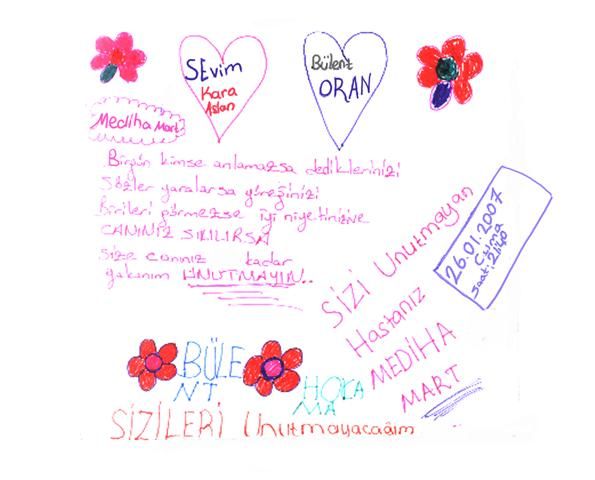 SEvim
Kara
Aslan
Bülent
ORAN
Mediha Mart
Birgün kimse anlamazsa dediklerinizi
Sözler yaralarsa yüreğinizi
Birileri görmezse iyi niyetinizive
CANINIZ SIKILIRSA
Size canınız kadar
yakınım UNUTMAYIN..
26.01.2007
Cuma
Saat:21:40
SİZİ Unutmayan
Hastanız
MEDİHA
MART
BÜLE
NT
HOCA
MA
SİZİLERİ Unutmayacağım